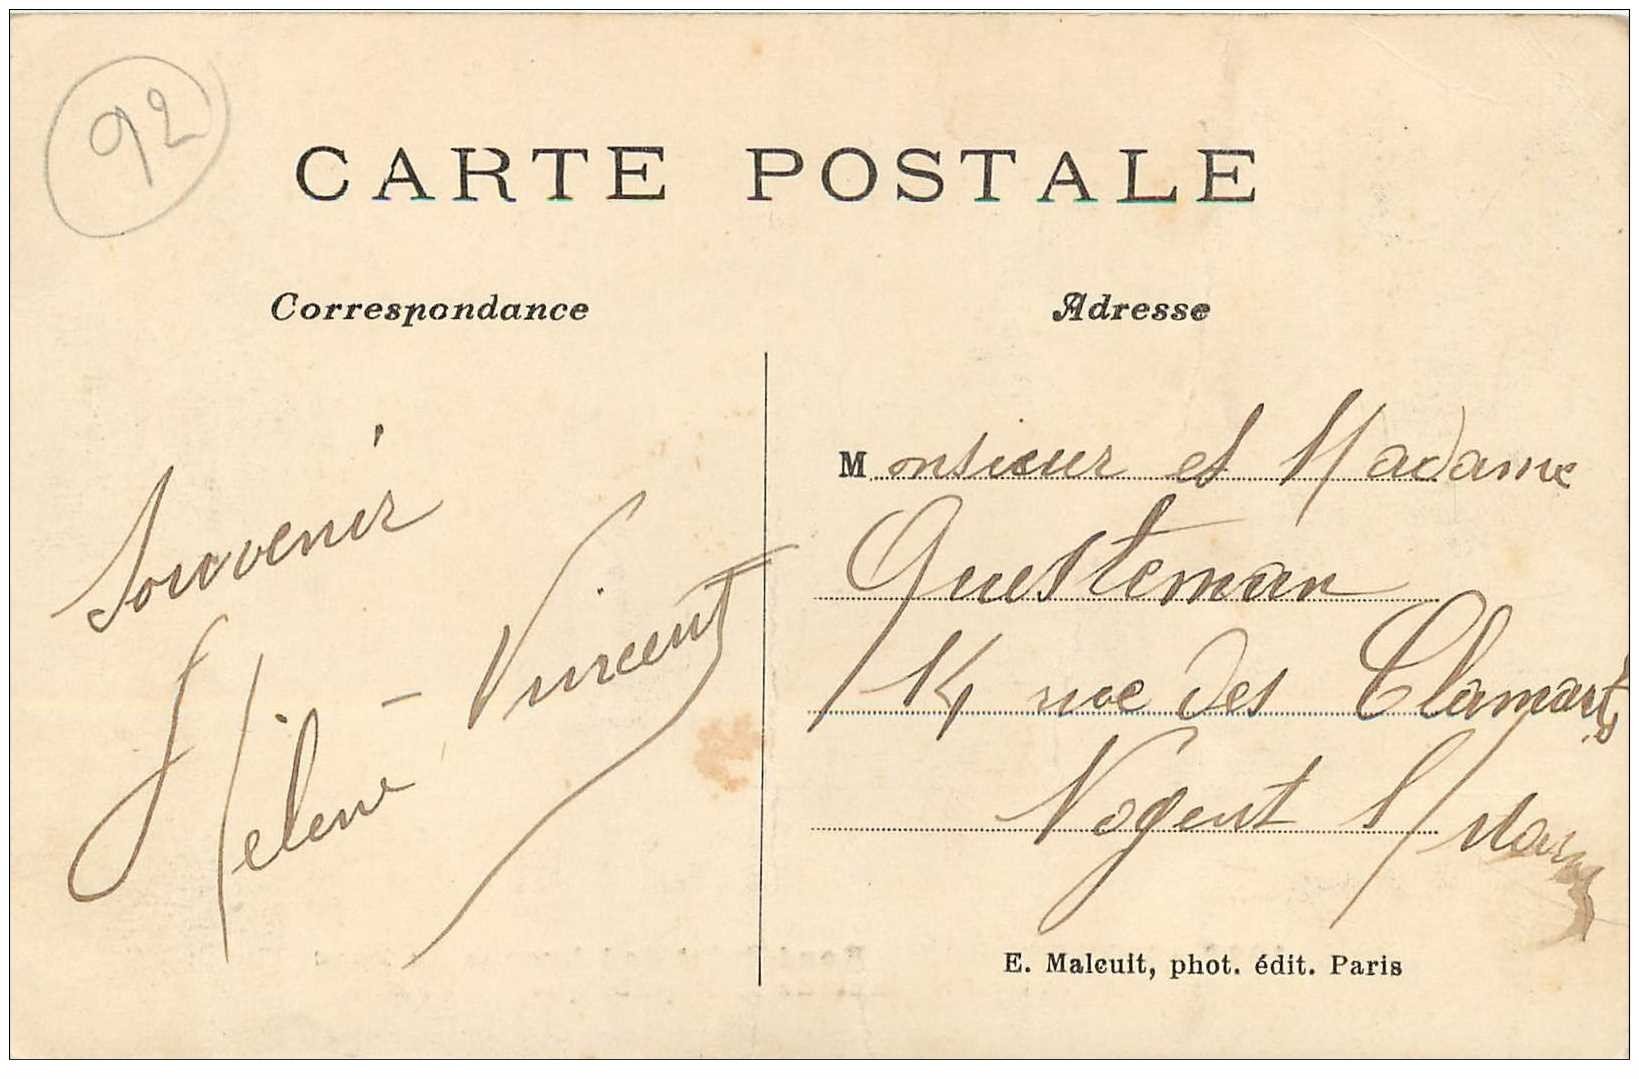 92
CARTE POSTALE
Correspondance
Adresse
Souvenir
Hélène Vincent
Monsieur et Madame
Questeman
14 rue des Clamarts
Nogent s/ Marne
E. Malcuit, phot. édit. Paris